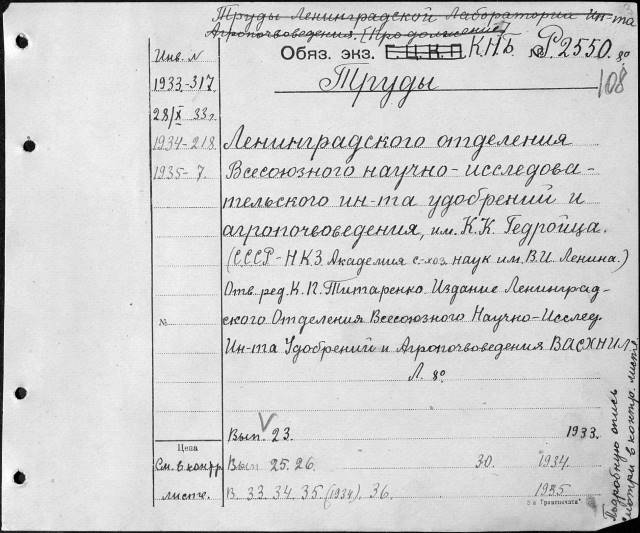 Труды Ленинградской Лаборатории Ин-та
Агропочвоведения. [Продолжение]
Обяз. экз. Г.Ц.К.П. КПБ № Р2550. 8º
108
Инв. N
1933-317
28/X 33г.
1934-218
1935-7
Труды
Ленинградского отделения
Всесоюзного научно-исследова-
тельского ин-та удобрений и
агропочвоведения, им. К.К. Гедройца.
(СССР-НКЗ Академия с-хоз. наук им. В.И. Ленина.)
Отв. ред. К.П. Титаренко Издание Ленинград-
ского Отделения Всесоюзного Научно-Исслед.
Ин-та Удобрений и Агропочвоведения ВАСХНИЛ
Л. 8º
№
Вып. 23. 1933.
Цена
См. в контр.
листе.
Вып 25. 26. 30. 1934.
В. 33. 34. 35. (1934). 36. 1935
Подробную опись
смотри в контр. листе